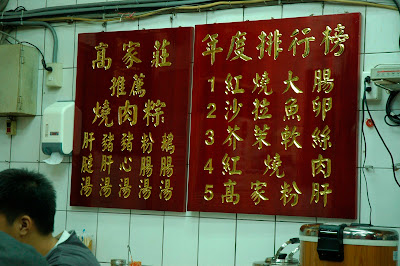 高家莊
推薦
燒肉粽
肝湯
豬肝湯
豬心湯
粉腸湯
鵝腸湯
年度排行榜
1 紅燒大腸
2 沙拉魚卵
3 芥茉軟絲
4 紅燒肉
5 高家粉肝